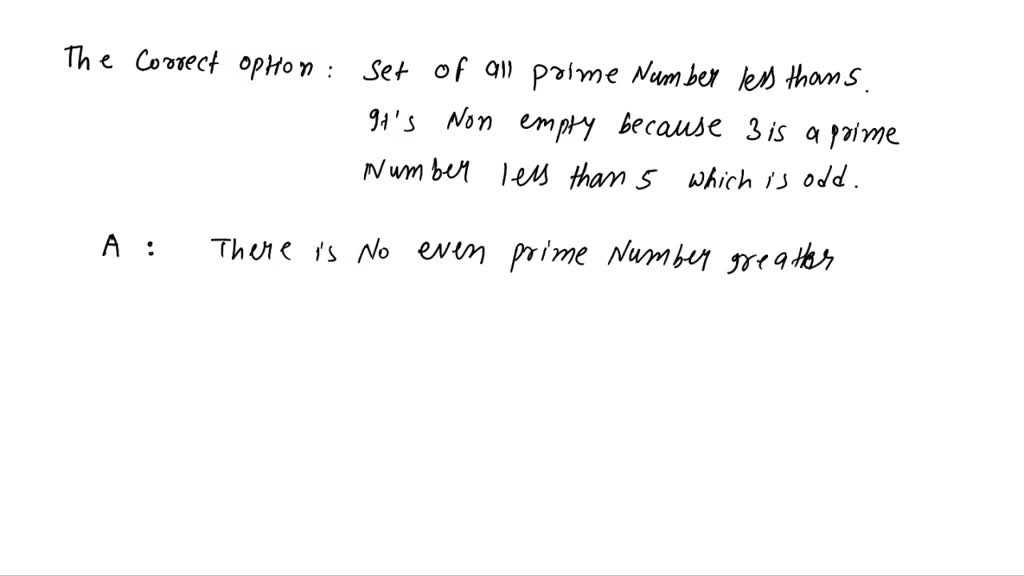 The Correct option : Set of all prime Number less than 5.
It's Non empty because 3 is a prime
Number less than 5 which is odd.
A : There is No even prime Number greater